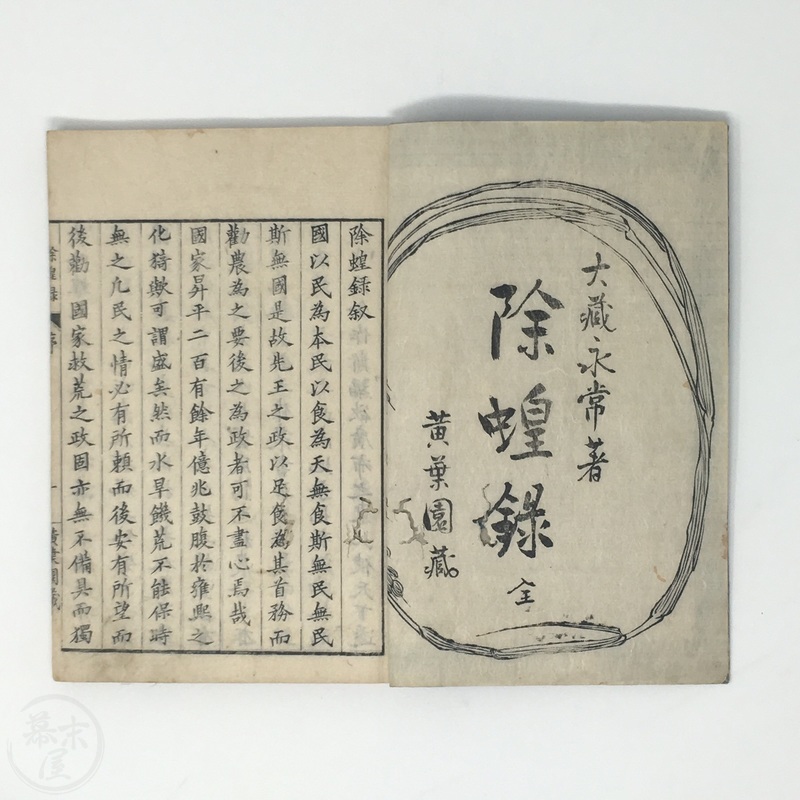 大藏永常著
除蝗錄 全
黄葉園藏
除蝗録叙
國以民為本民以食為天無食斯無民無民
斯無國是故先王之政以足食為其首務而
勸農為之要後之為政者可不盡心焉哉
國家昇平二百有餘年億兆鼓腹於雍熙之
化猗歟可謂盛矣然而水旱饑荒不能保時
無之凡民之情必有所頼而後安有所望而
後勸 國家救荒之政固亦無不備具而獨
除蝗録 序 一 黄葉園藏
幕末屋